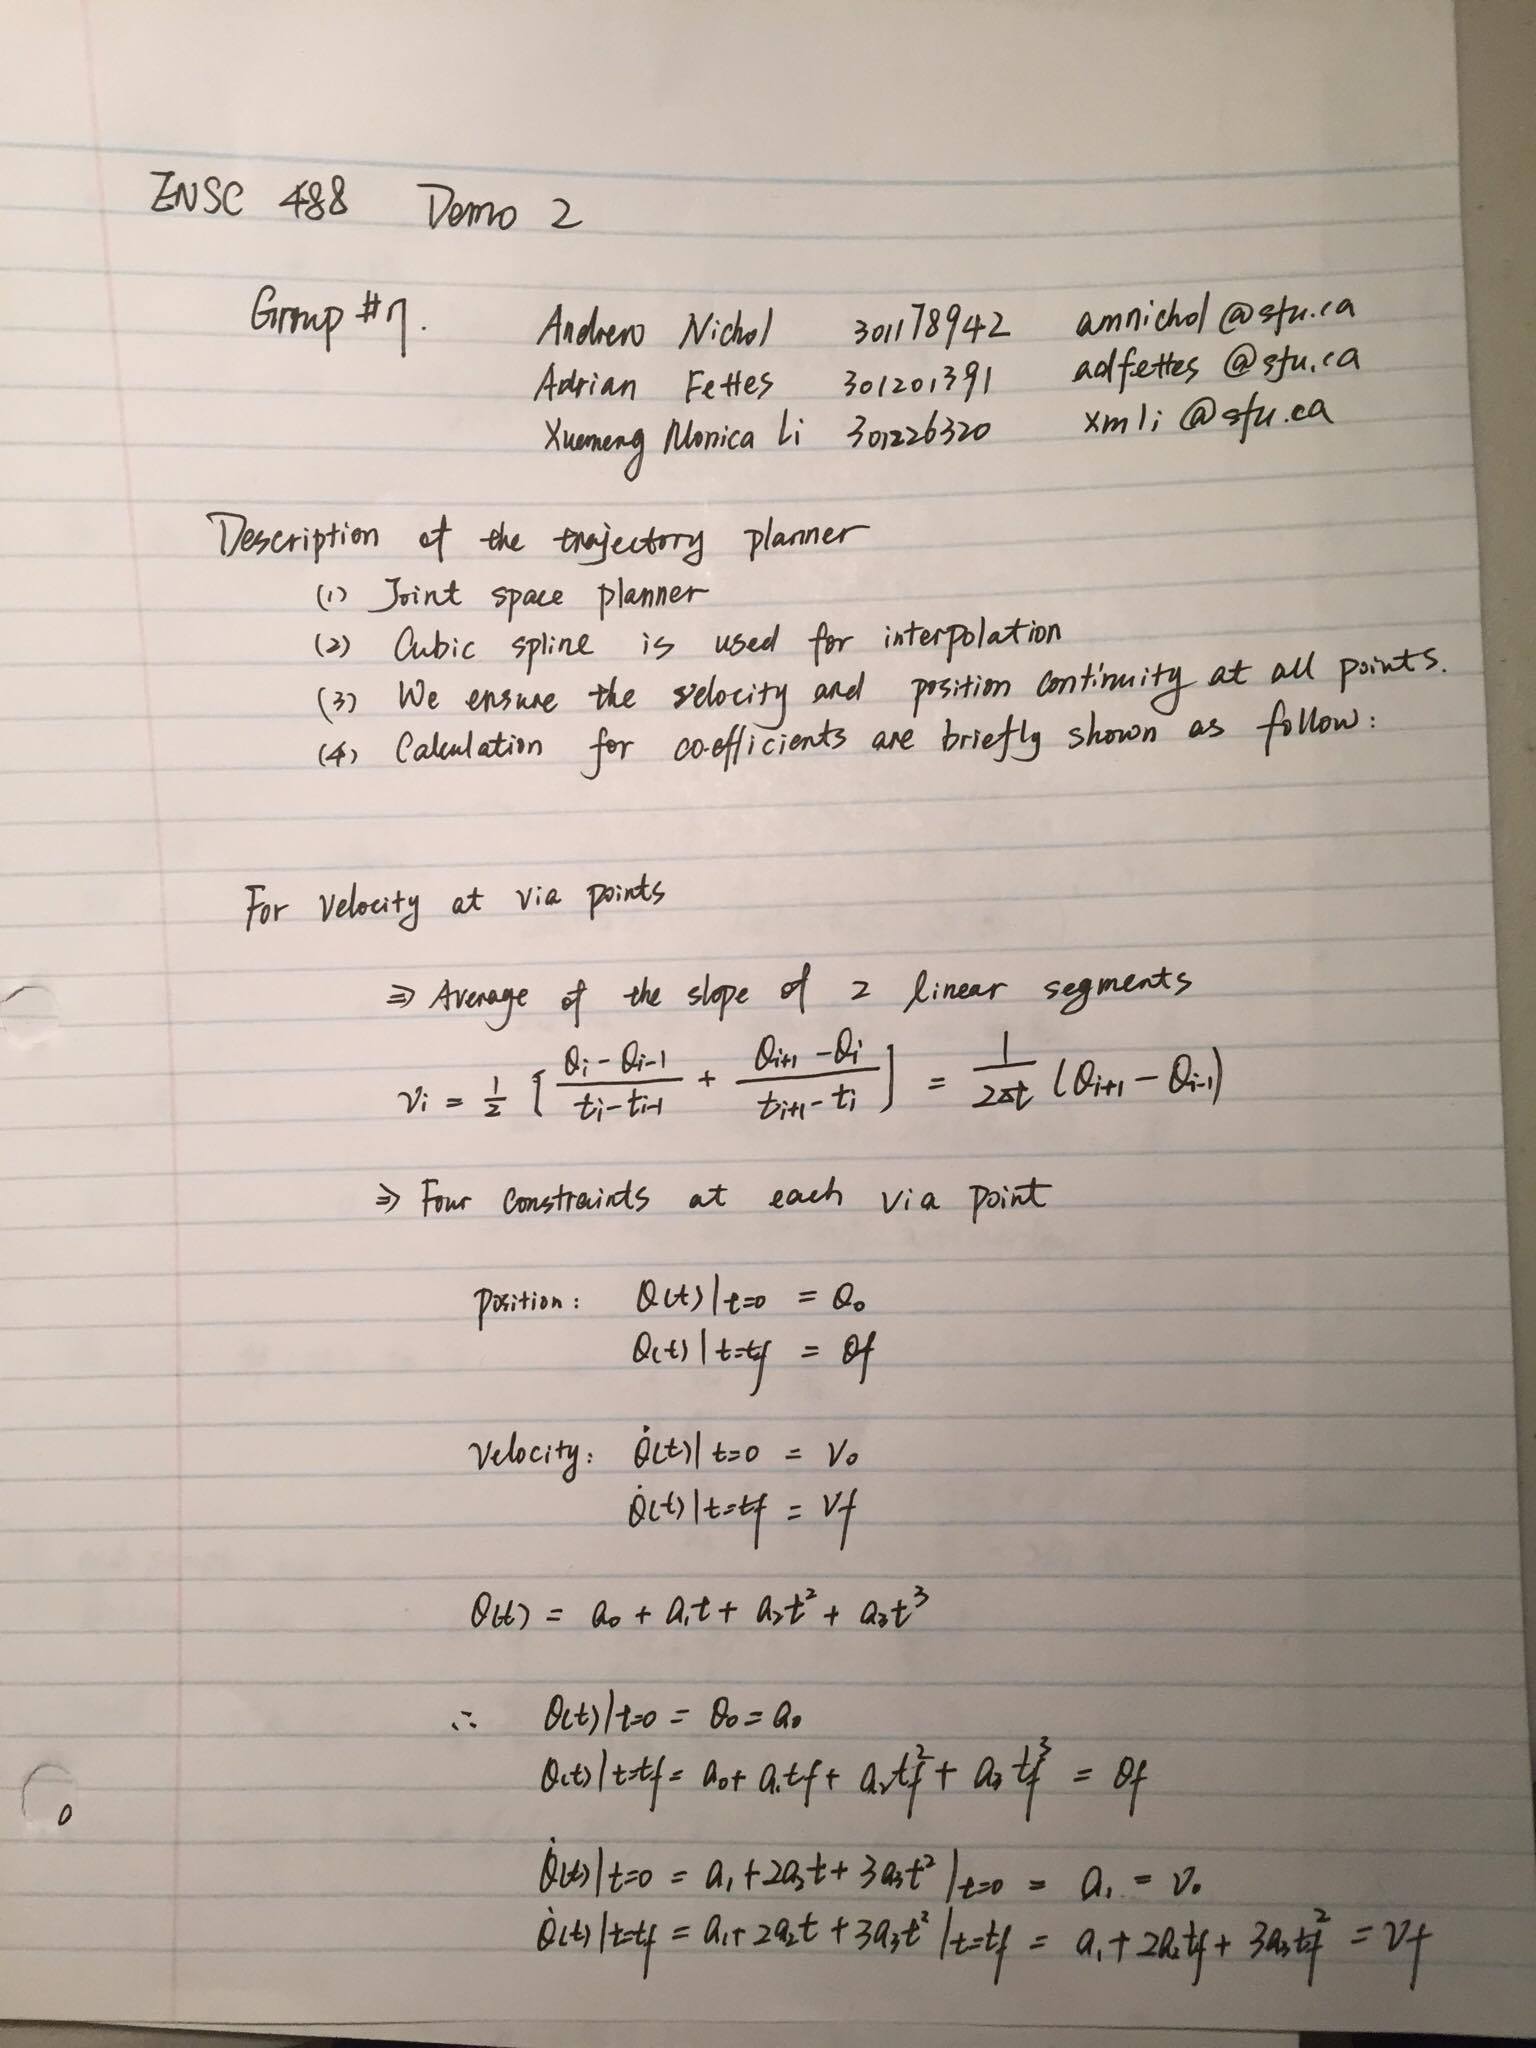 ENSC 488 Demo 2
Group #7. Andrew Nichol 301178942 amnichol@sfu.ca
Adrian Fettes 301201391 adfettes@sfu.ca
Xuemeng Monica Li 301226320 xmli@sfu.ca
Description of the trajectory planner
(1) Joint space planner
(2) Cubic spline is used for interpolation
(3) We ensure the velocity and position continuity at all points.
(4) Calculation for co-efficients are briefly shown as follow:
For velocity at via points
⇒ Average of the slope of 2 linear segments
vi = 1/2 [ (θi - θi-1)/(ti - ti-1) + (θi+1 - θi)/(ti+1 - ti) ] = 1/(2Δt) (θi+1 - θi-1)
⇒ Four constraints at each via point
position: θ(t)|t=0 = θ0
θ(t)|t=tf = θf
Velocity: θ̇(t)|t=0 = v0
θ̇(t)|t=tf = vf
θ(t) = a0 + a1t + a2t² + a3t³
∴ θ(t)|t=0 = θ0 = a0
θ(t)|t=tf = a0 + a1tf + a2tf² + a3tf³ = θf
θ̇(t)|t=0 = a1 + 2a2t + 3a3t²|t=0 = a1 = v0
θ̇(t)|t=tf = a1 + 2a2t + 3a3t²|t=tf = a1 + 2a2tf + 3a3tf² = vf